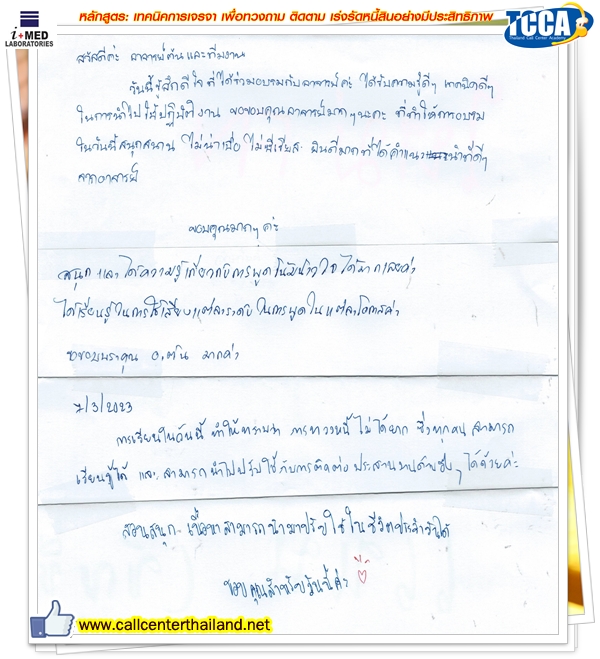 หลักสูตร: เทคนิคการเจรจา เพื่อทวงถาม ติดตาม เร่งรัดหนี้สินอย่างมีประสิทธิภาพ
i+MED
LABORATORIES
TCCA
Thailand Call Center Academy
สวัสดีค่ะ อาจารย์ตันและทีมงาน
วันนี้รู้สึกดีใจที่ได้ร่วมอบรมกับอาจารย์ค่ะ ได้รับความรู้ดีๆ เทคนิคดีๆ
ในการนำไปใช้ปฏิบัติงาน ขอขอบคุณอาจารย์มากๆนะคะ ที่ทำให้การอบรม
ในวันนี้สนุกสนาน ไม่น่าเบื่อ ไม่ซีเรียส ยินดีมากที่ได้คำแนะนำที่ดีๆ
จากอาจารย์
ขอบคุณมากๆ ค่ะ
สนุก และได้ความรู้เกี่ยวกับการพูดโน้มน้าวใจได้มากเลยค่ะ
ได้เรียนรู้ในการใช้เสียงแต่ละระดับ ในการพูดในแต่ละโอกาสค่ะ
ขอขอบพระคุณ อ.ตัน มากค่ะ
7/3/2023
การเรียนในวันนี้ ทำให้ทราบว่า การทวงหนี้ ไม่ได้ยาก ซึ่งทุกคน สามารถ
เรียนรู้ได้ และ สามารถนำไปปรับใช้กับการติดต่อ ประสานงานด้านอื่นๆ ได้ด้วยค่ะ
สอนสนุก เนื้อหาสามารถนำมาปรับใช้ในชีวิตประจำวันได้
ขอบคุณสำหรับวันนี้ค่ะ
www.callcenterthailand.net